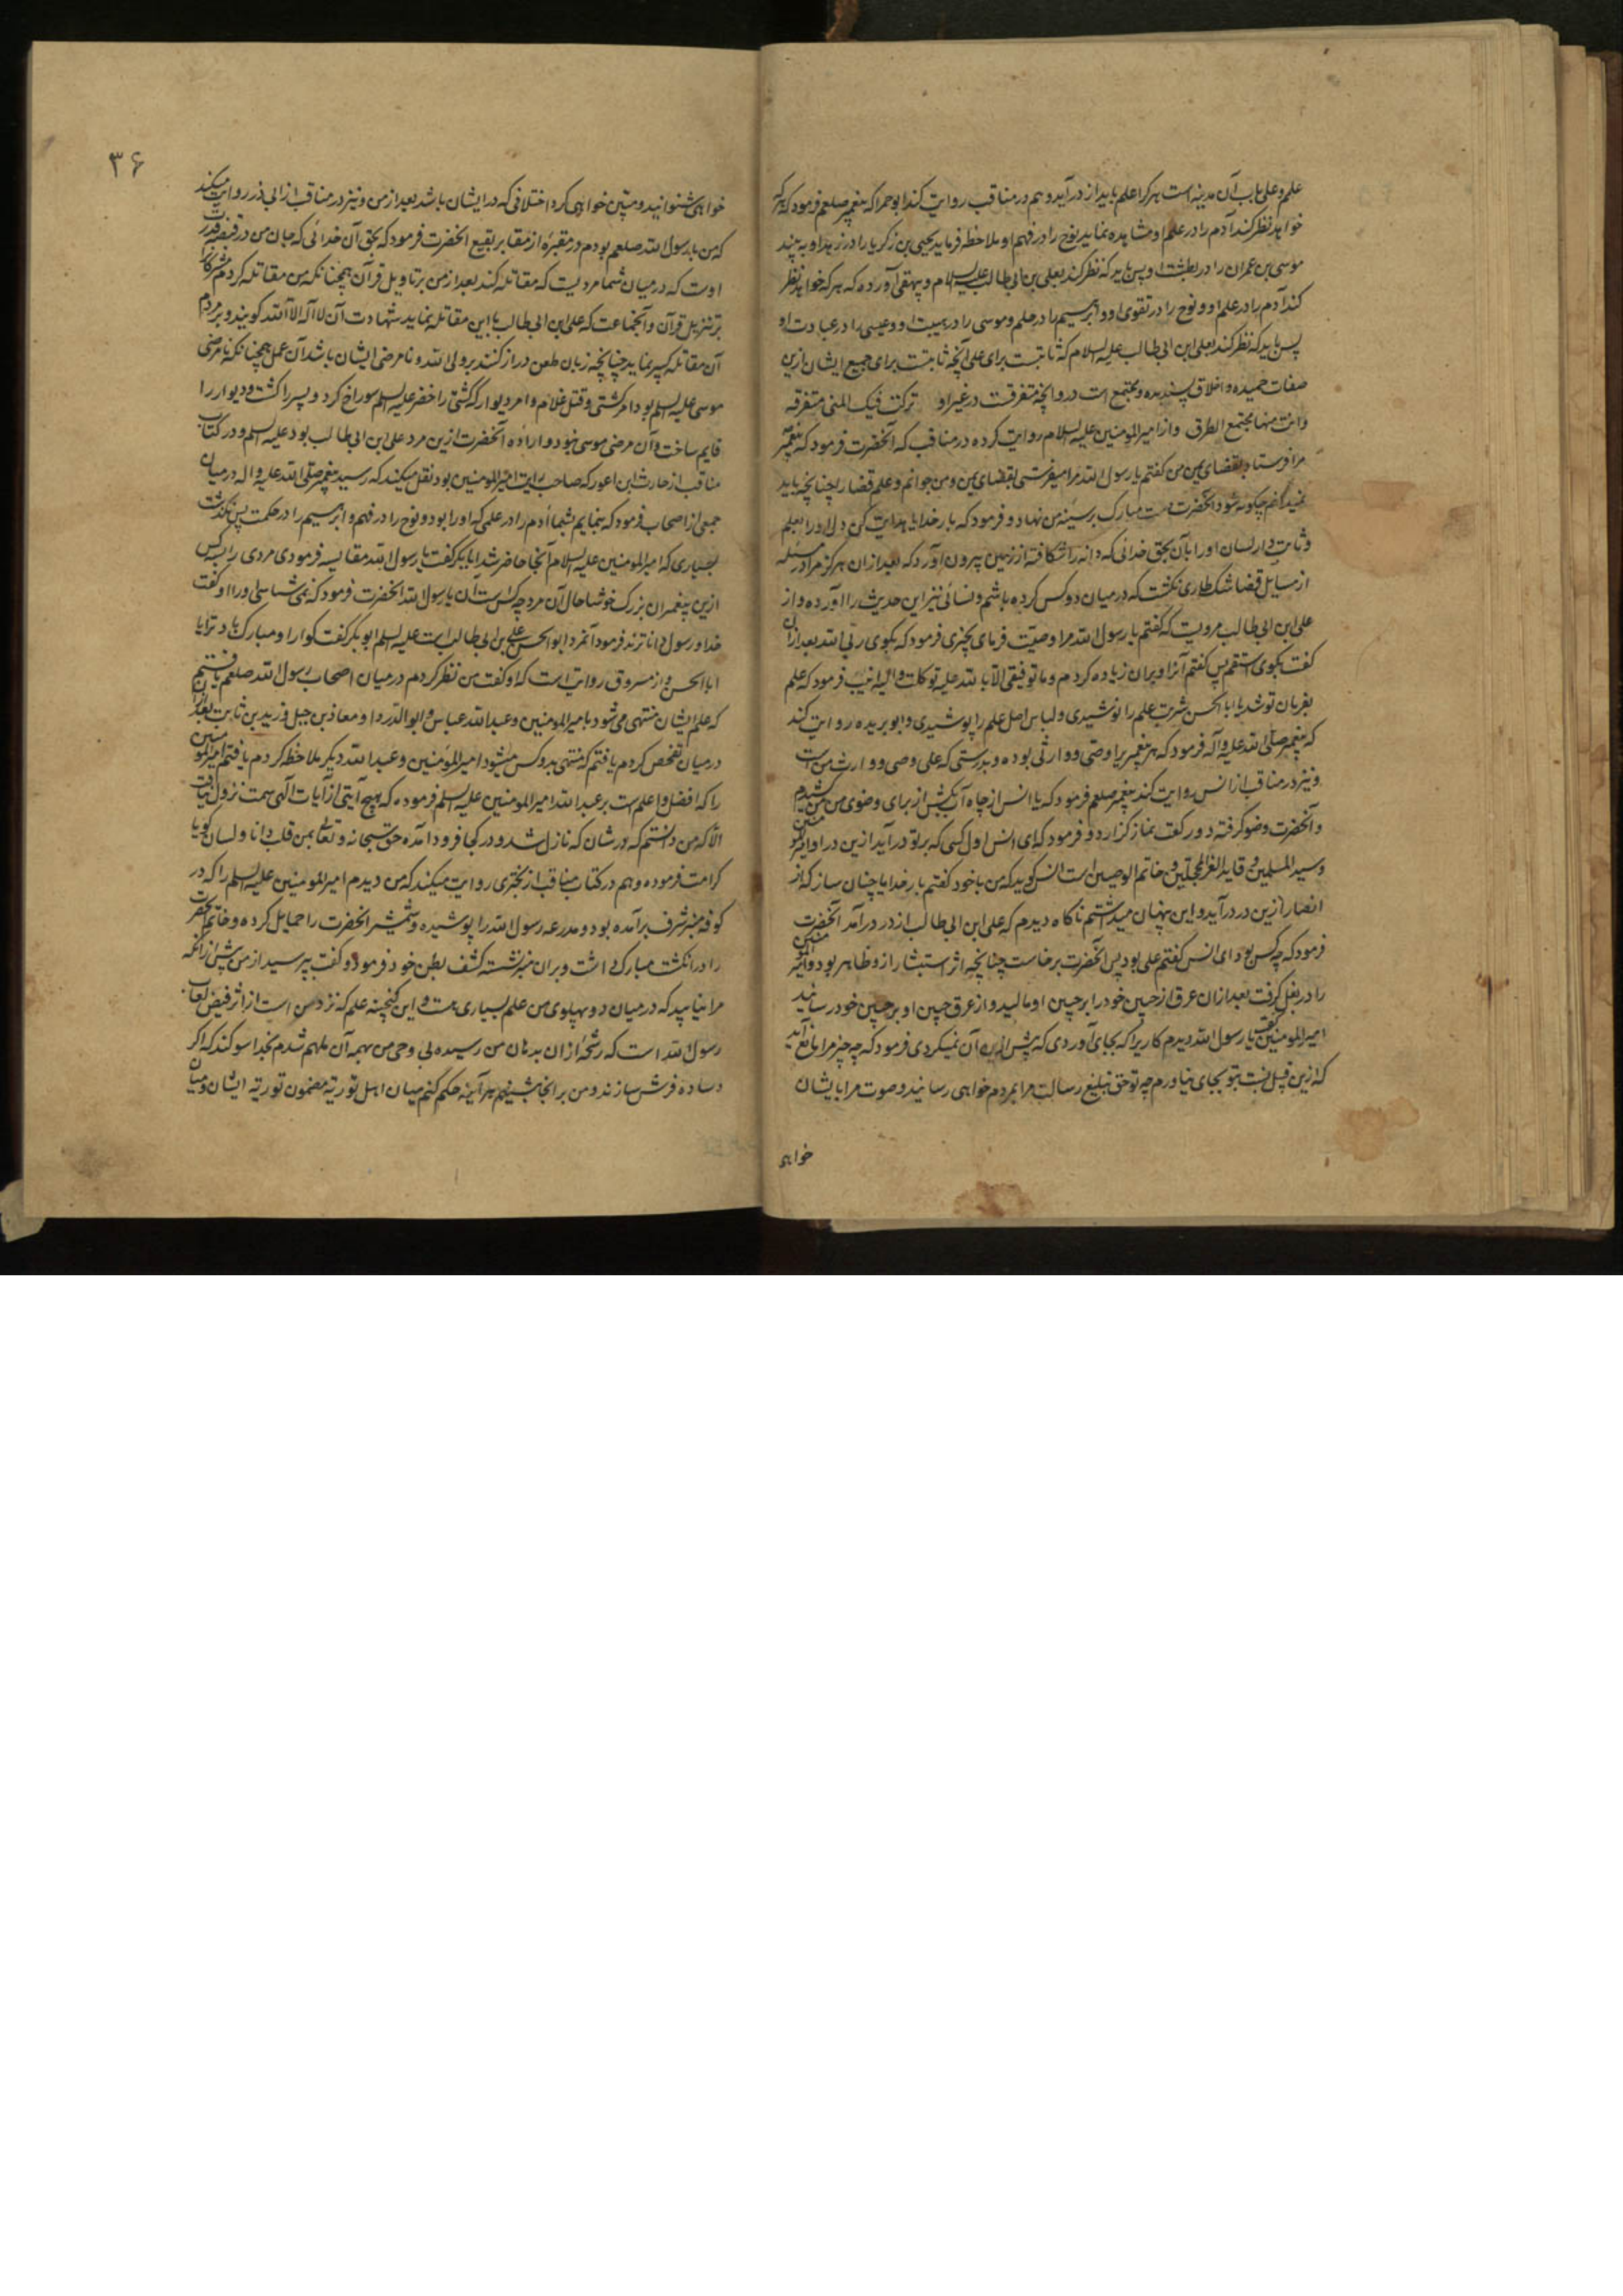 علم و علی باب آن مدینه است هر کرا علم باید از در آید و هم در مناقب روایت کند ابو حمرا که پیغمبر صلعم فرمود که هر که
خواهد نظر کند آدم را در علم او مشاهده نماید نوح را در فهم او ملاحظه فرماید یحیی بن زکریا را در زهد او به بیند
موسی بن عمران را در بطشت او پس باید که نظر کند بعلی بن ابی طالب علیه السلام و بیهقی آورده که هر که خواهد نظر
کند آدم را در علم او و نوح را در تقوی او و ابرهیم را در حلم و موسی را در هیبت او و عیسی را در عبادت او
پس باید که نظر کند بعلی ابن ابی طالب علیه السلام که ثابتست برای علی آنچه ثابتست برای جمیع ایشان ازین
صفات حمیده و اخلاق پسندیده و مجتمع است در و آنچه متفرقست در غیر او
وانت منها مجتمع الطرق و از امیر المومنین علیه السلام روایت کرده در مناقب که آنحضرت فرمود که پیغمبر
مرا فرستاد بقضای یمن من کفتم یا رسول الله مرا میفرستی بقضای یمن و من جوانم و علم قضا را چنانچه باید
نمیدانم چکونه شود آنحضرت دست مبارک بر سینه من نهاد و فرمود که بار خدایا هدایت کن دل او را بعلم
و ثابت دار لسان او را بآن بحق خدائی که دانه را شکافته از زمین بیرون آورد که بعد از آن هرکز مرا در مسئله
از مسایل قضا شک طاری نکشت که در میان دو کس کرده باشم و نسائی نیز این حدیث را آورده و از
علی ابن ابی طالب مرویست که کفتم یا رسول الله مرا وصیّت فرمای بچیزی فرمود که بکوی ربّی الله بعد از ان
کفت بکوی استقم پس کفتم آنرا و بران زیاده کردم و ما توفیقی الّا بالله علیه توکلت و الیه انیب فرمود که علم
بفرمان تو شد یا ابا الحسن شربت علم را نوشیدی و لباس اصل علم را پوشیدی و ابو بریده روایت کند
که پیغمبر صلّی الله علیه و آله فرمود که هر پیغمبریرا وصّی و وارثی بوده و بدرستی که علی وصی و وارث من است
و نیز در مناقب از انس روایت کند پیغمبر صلعم فرمود که یا انس از چاه آب بکش از برای وضوی من من کشیدم
و آنحضرت وضو کرفته دو رکعت نماز کزارد و فرمود که ای انس اول کسی که بر تو درآید ازین در او امیر المومنین
و سید المسلمین و قاید الغرّ المحجلین و خاتم الوصیین است انس کوید که من با خود کفتم بار خدایا چنان ساز که از
انصار ازین در درآید و این پنهان میداشتم ناکاه دیدم که علی ابن ابی طالب از در درآمد آنحضرت
فرمود که چه کس بود ای انس کفتم علی بود پس آنحضرت برخاست چنانچه اثر استبشار ازو ظاهر بود و امیر المومنین
را در بغل کرفت بعد از ان عرق از جبین خود را بر جبین او مالید و از عرق جبین او بر جبین خود رسانید
امیر المومنین کفت یا رسول الله دیدم کاریرا که بجای آوردی که پیش ازین آن نمیکردی فرمود که چه چیز مرا مانع آید
که ازین قبل نسبت بتو بجای نیاورم چه تو حق تبلیغ رسالت مرا بمردم خواهی رسانید و صوت مرا بایشان
خواهی
۳۶
خواهی شنوانید و مبیّن خواهی کرد اختلافی که در ایشان باشد بعد از من و نیز در مناقب از ابی ذر روایت میکند
که من با رسول الله صلعم بودم در مقبرۀ از مقابر بقیع انحضرت فرمود که بحق آن خدائی که جان من در قبضه قدرت
اوست که در میان شما مردیست که مقاتله کند بعد از من بر تاویل قرآن همچنانکه من مقاتله کردم با مشرکان
بر تنزیل قرآن و آنجماعت که علی ابن ابی طالب با این مقاتله نماید شهادت آن لا آله الا الله کویند و بر مردم
آن مقاتله کبیر نماید چنانچه زبان طعن دراز کنند بر ولی الله و نامرضی ایشان باشد آن عمل همچنانکه نامرضی
موسی علیه السلم بود امر کشتی و قتل غلام و امر دیوار که کشتی را خضر علیه السلم سوراخ کرد و پسر را کشت و دیوار را
قایم ساخت و آن مرضی موسی نبود و ارادۀ آنحضرت ازین مرد علی ابن ابی طالب بود علیه السلم و در کتاب
مناقب از حارث ابن اعور که صاحب رایت امیر المومنین بود نقل میکند که رسید پیغمبر صلّی الله علیه و اله در میان
جمعی از اصحاب فرمود که بنمایم بشما آدم را در علمی که او را بود و نوح را در فهم و ابرهیم را در حکمت پس نکذشت
بسیاری که امیر المومنین علیه السلام آنجا حاضر شد ابابکر کفت یا رسول الله مقایسه فرمودی مردی را بسه کس
ازین پیغمبران بزرک خوشا حال آن مرد چه کس است آن یا رسول الله انحضرت فرمود که نمی شناسی او را او کفت
خدا و رسول داناترند فرمود آنمرد ابو الحسن علی بن ابی طالب است علیه السلم ابو بکر کفت کوارا و مبارک باد ترا یا
ابا الحسن و از مسروق روایت است که او کفت من نظر کردم در میان اصحاب رسول الله صلعم یافتم
که علم ایشان منتهی می شود بامیر المومنین و عبد الله عباس و ابو الدّردا و معاذ بن جبل و زید بن ثابت بعد از آن
در میان تفحص کردم یافتم که منتهی بدو کس میشود امیر المومنین و عبد الله دیکر ملاحظه کردم یافتم امیر المومنین
را که افضل و اعلم است بر عبد الله امیر المومنین علیه السلم فرموده که هیچ آیتی از آیات آلهی سمت نزول نیافت
الّا که من دانستم که در شان که نازل شد و در کجا فرود آمده حق سبحانه و تعالی بمن قلب دانا و لسان کویا
کرامت فرموده و هم در کتاب مناقب از بختری روایت میکند که من دیدم امیر المومنین علیه السلم را که در
کوفه بمنبر شرف برآمده بود و مدرعه رسول الله را پوشیده و شمشیر انحضرت را حمایل کرده و خاتم آنحضرت
را در انکشت مبارک داشت و بران منبر نشسته کشف بطن خود فرمود و کفت بپرسید از من پیش از آنکه
مرا نیابید که در میان دو پهلوی من علم بسیاری هست و این کنجینه علم که نزد من است از اثر فیض لعاب
رسول الله است که رشحۀ از ان بدهان من رسیده بی وحی من بهمه آن ملهم شدم بخدا سوکند که اکر
وساده فرش سازند و من بر انجا بنشینم هر آینه حکم کنم میان اهل توریة مضمون توریة ایشان و میان